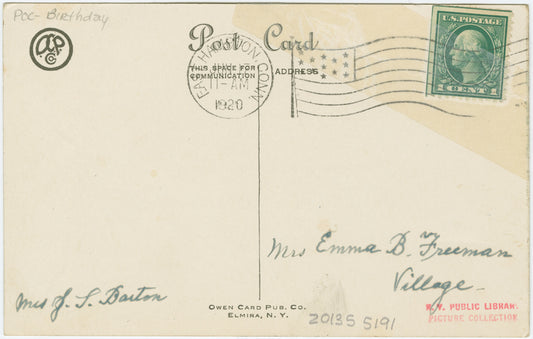 Pcc-Birthday
Post Card
THIS SPACE FOR
COMMUNICATION
ADDRESS
EAST HAMPTON CONN
11-AM
1920
U.S. POSTAGE
1 CENT 1
Mrs Emma B. Freeman
Village-
Mrs J. S. Barton
OWEN CARD PUB. CO.
ELMIRA, N. Y.
N.Y. PUBLIC LIBRARY
PICTURE COLLECTION
20135 5191